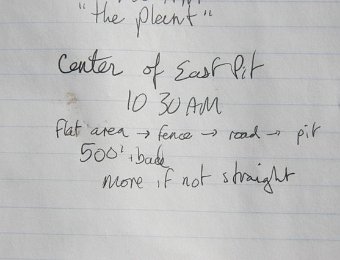 "the plant"
Center of East Pit
10 30 AM
flat area → fence → road → pit
500' + back
more if not straight